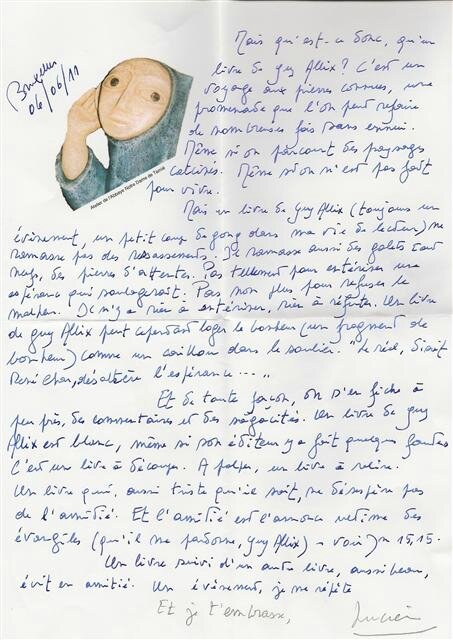 Bruxelles
06/06/11
Atelier de l'Abbaye Notre Dame de Tamié
Mais qu'est-ce donc, qu'un
livre de Guy Allix ? C'est un
voyage aux pierres connues, une
promenade que l'on peut refaire
de nombreuses fois sans ennui.
Même si on parcourt des paysages
calcinés. Même si on n'est pas fait
pour vivre.
Mais un livre de Guy Allix (toujours un
évènement, un petit coup de gong dans ma vie de lecteur) ne
ramasse pas des ressassements. Il ramasse aussi des galets tout
neufs, des pierres d'attentes. Pas tellement pour entériner une
espérance qui soulagerait. Pas non plus pour refuser le
malheur. Il n'y a rien à entériner, rien à réfuter. Un livre
de Guy Allix peut cependant loger le bonheur (un fragment de
bonheur) comme un caillou dans le soulier. "Le réel, disait
René Char, désaltère l'espérance....
Et de toute façon, on s'en fiche à
peu près, des commentaires et des sagacités. Un livre de Guy
Allix est blanc, même si son éditeur y a fait quelques fautes
C'est un livre à découper. A palper, un livre à relire.
Un livre qui, aussi triste qu'il soit, ne désespère pas
de l'amitié. Et l'amitié est l'annonce ultime des
évangiles (qu'il me pardonne, Guy Allix) - voir Jn 15,15.
Un livre suivi d'un autre livre, aussi beau,
écrit en amitié. Un évènement, je me répète
Et je t'embrasse,
Lucien